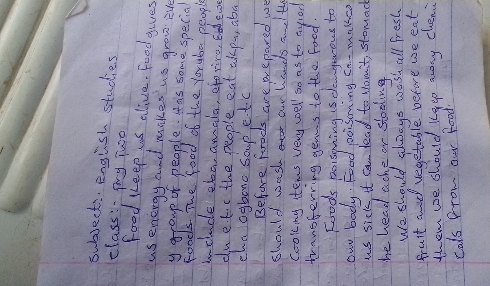 Subject:- English Studies
Class:- Pry Two
Food keep us alive. Food gives
us energy and makes us grow. Eve
y group of people. Has some special
foods. The food of the Yoruba people
include eba, amala,
du e.t.c the people eat akpu, aba
cha ogbono Soup e.t.c
Before foods are prepared we
should wash our hands and the
Cooking items very well so as to avoid
transferring germs to the food.
Foods Poisoning is dangerous to
our body. Food poisoning can makes
us sick it can lead to Vomit, stomach
he head ache or stooling
We should always wash all fresh
fruit and vegetable before we eat
them we should keep away Chemi
cals from our food.